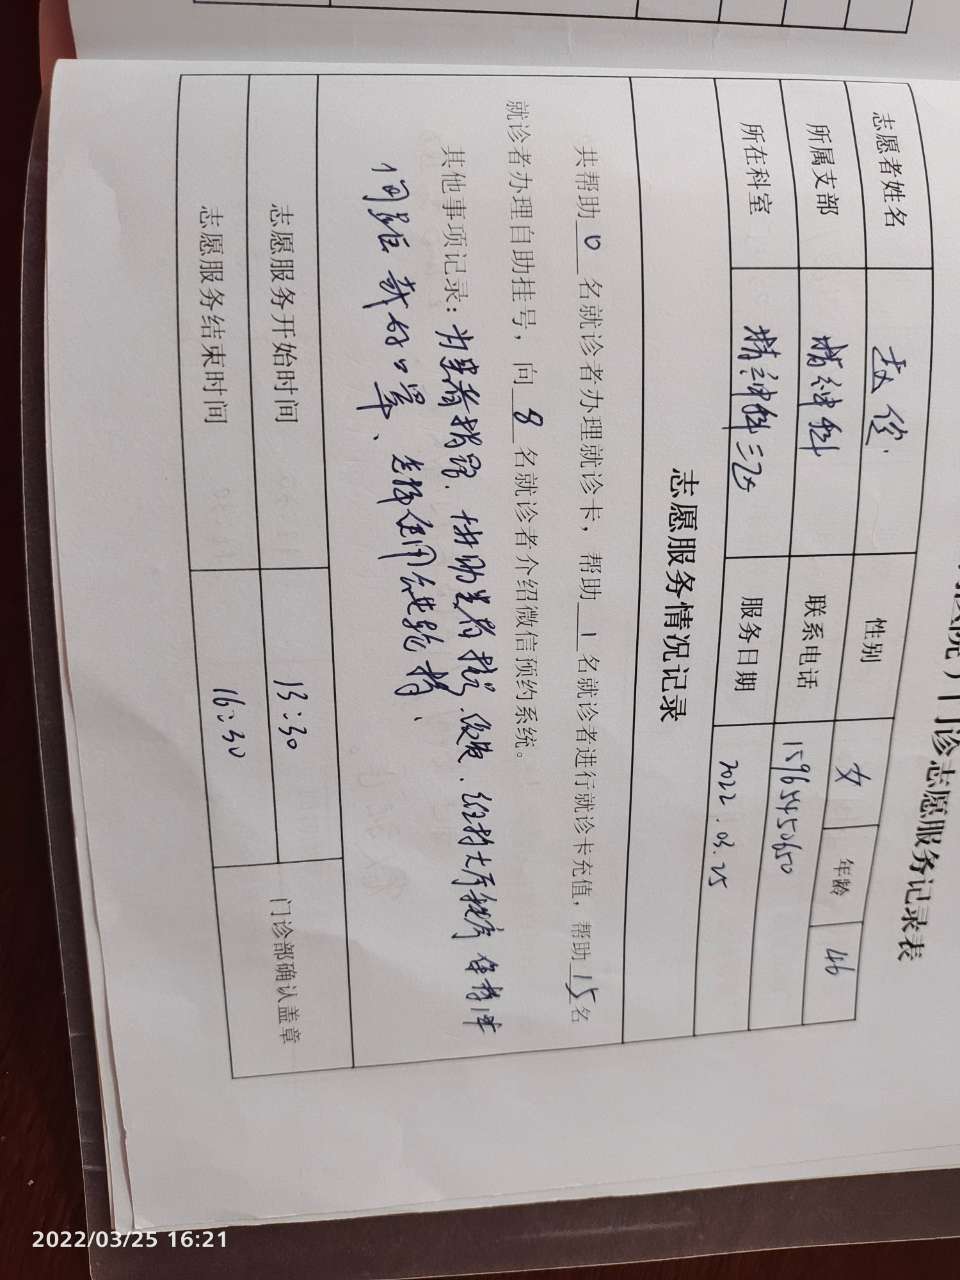 门诊志愿服务记录表
志愿者姓名 性别 女 年龄 46
所属支部 精神科 联系电话 15965450650
所在科室 精神科三区 服务日期 2022.03.25
志愿服务情况记录
共帮助 0 名就诊者办理就诊卡，帮助 1 名就诊者进行就诊卡充值，帮助 15 名
就诊者办理自助挂号，向 8 名就诊者介绍微信预约系统。
其他事项记录：为患者指路、协助患者 维持大厅秩序 保持1米
间距 戴好口罩、
志愿服务开始时间 13:30 门诊部确认盖章
志愿服务结束时间 16:30
2022/03/25 16:21